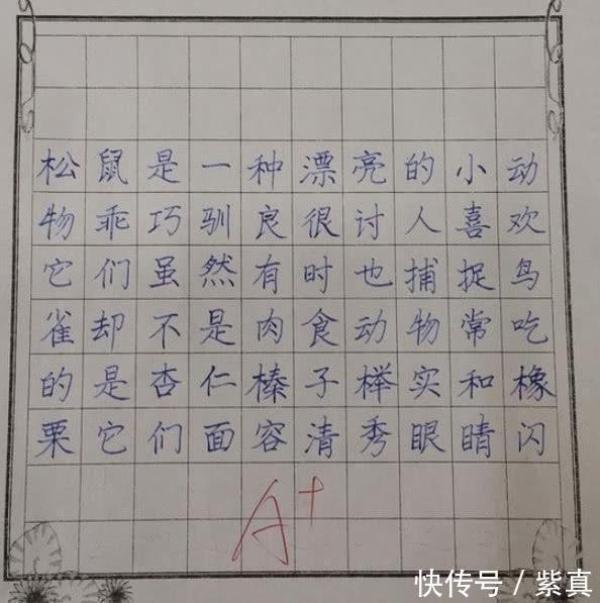 松鼠是一种漂亮的小动
物乖巧驯良很讨人喜欢
它们虽然有时也捕捉鸟
雀却不是肉食动物常吃
的是杏仁榛子榉实和橡
栗它们面容清秀眼睛闪
A+
快传号/紫真